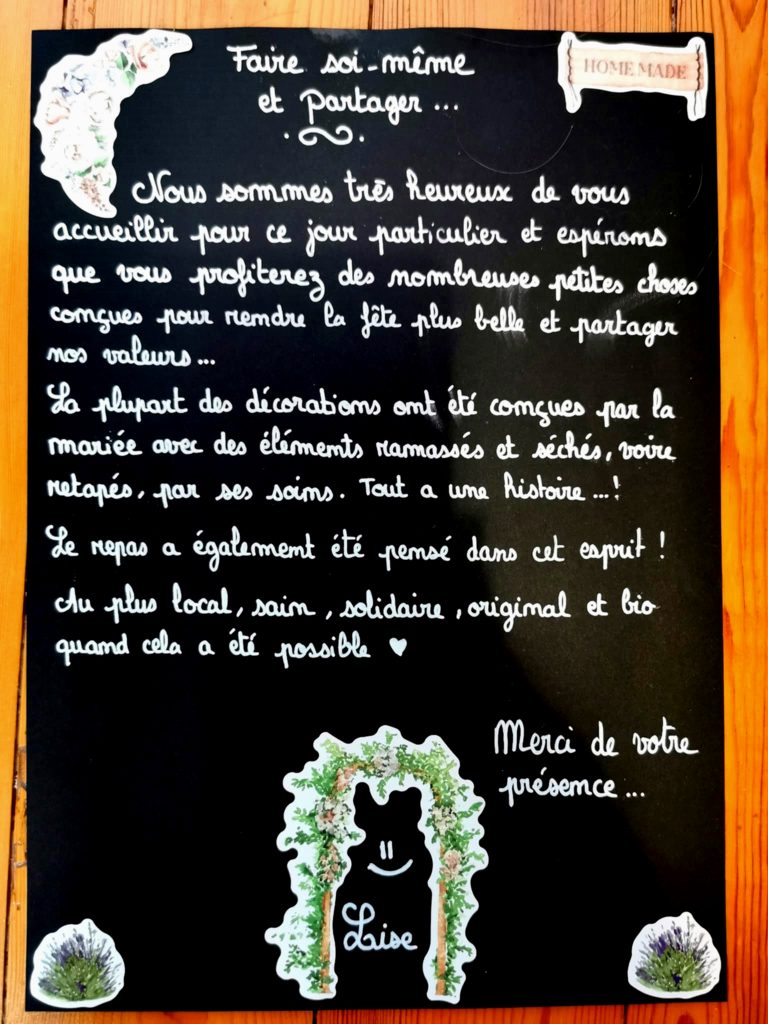 Faire soi-même
et partager...
HOME MADE
Nous sommes très heureux de vous
accueillir pour ce jour particulier et espérons
que vous profiterez des nombreuses petites choses
conçues pour rendre la fête plus belle et partager
nos valeurs...
La plupart des décorations ont été conçues par la
mariée avec des éléments ramassés et séchés, voire
retapés, par ses soins. Tout a une histoire...!
Le repas a également été pensé dans cet esprit !
Au plus local, sain, solidaire, original et bio
quand cela a été possible ♥
Merci de votre
présence...
Laise